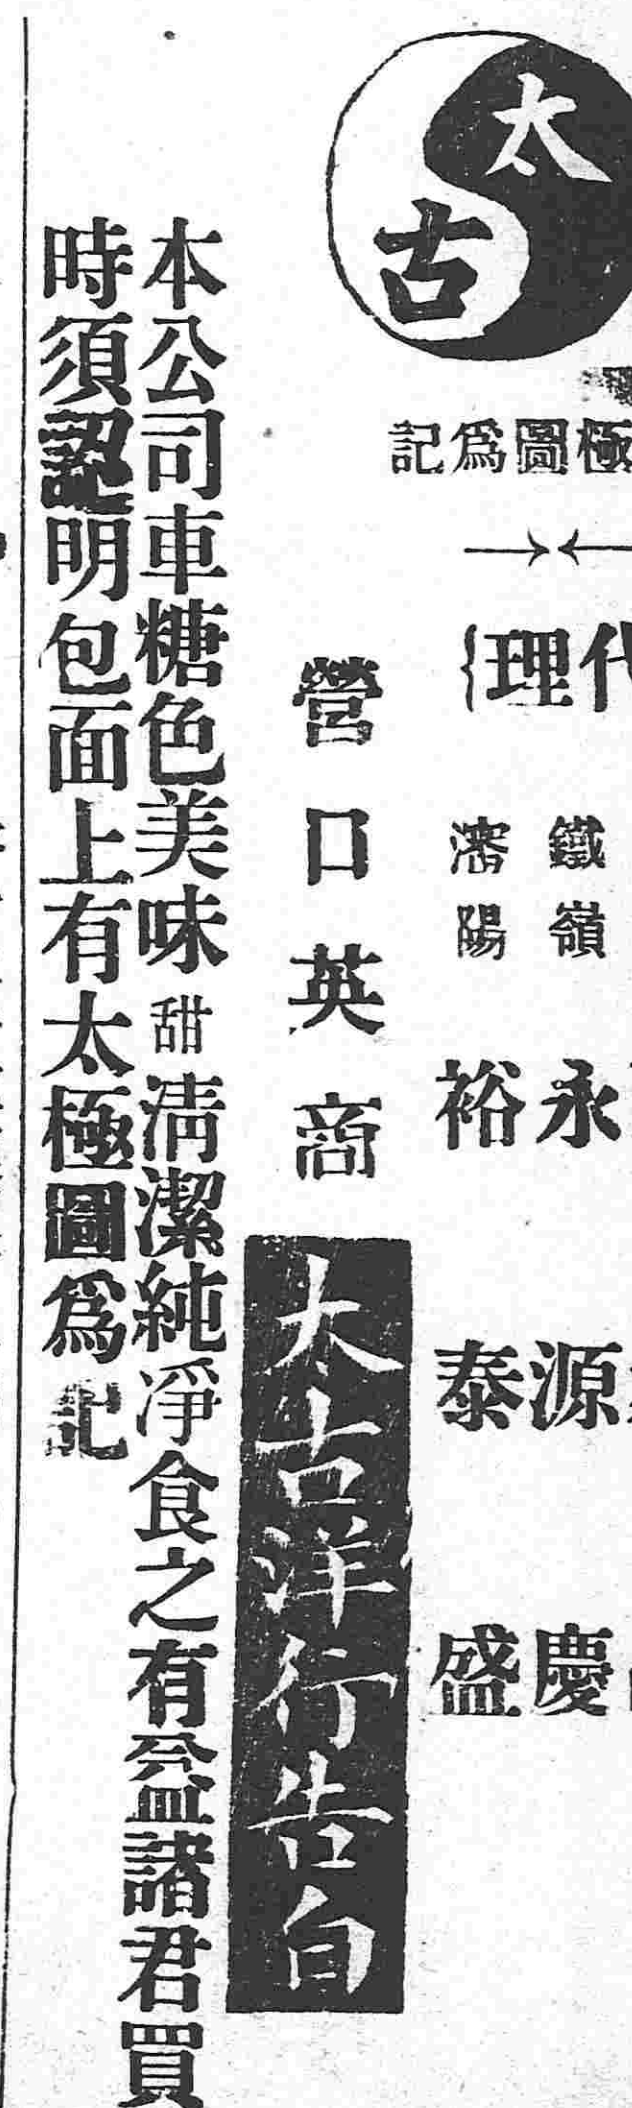 太古
極圖爲記
代理
鐵嶺 永源慶
瀋陽 裕泰盛
營口英商
太古洋行告白
本公司車糖色美味甜清潔純淨食之有益諸君買
時須認明包面上有太極圖爲記